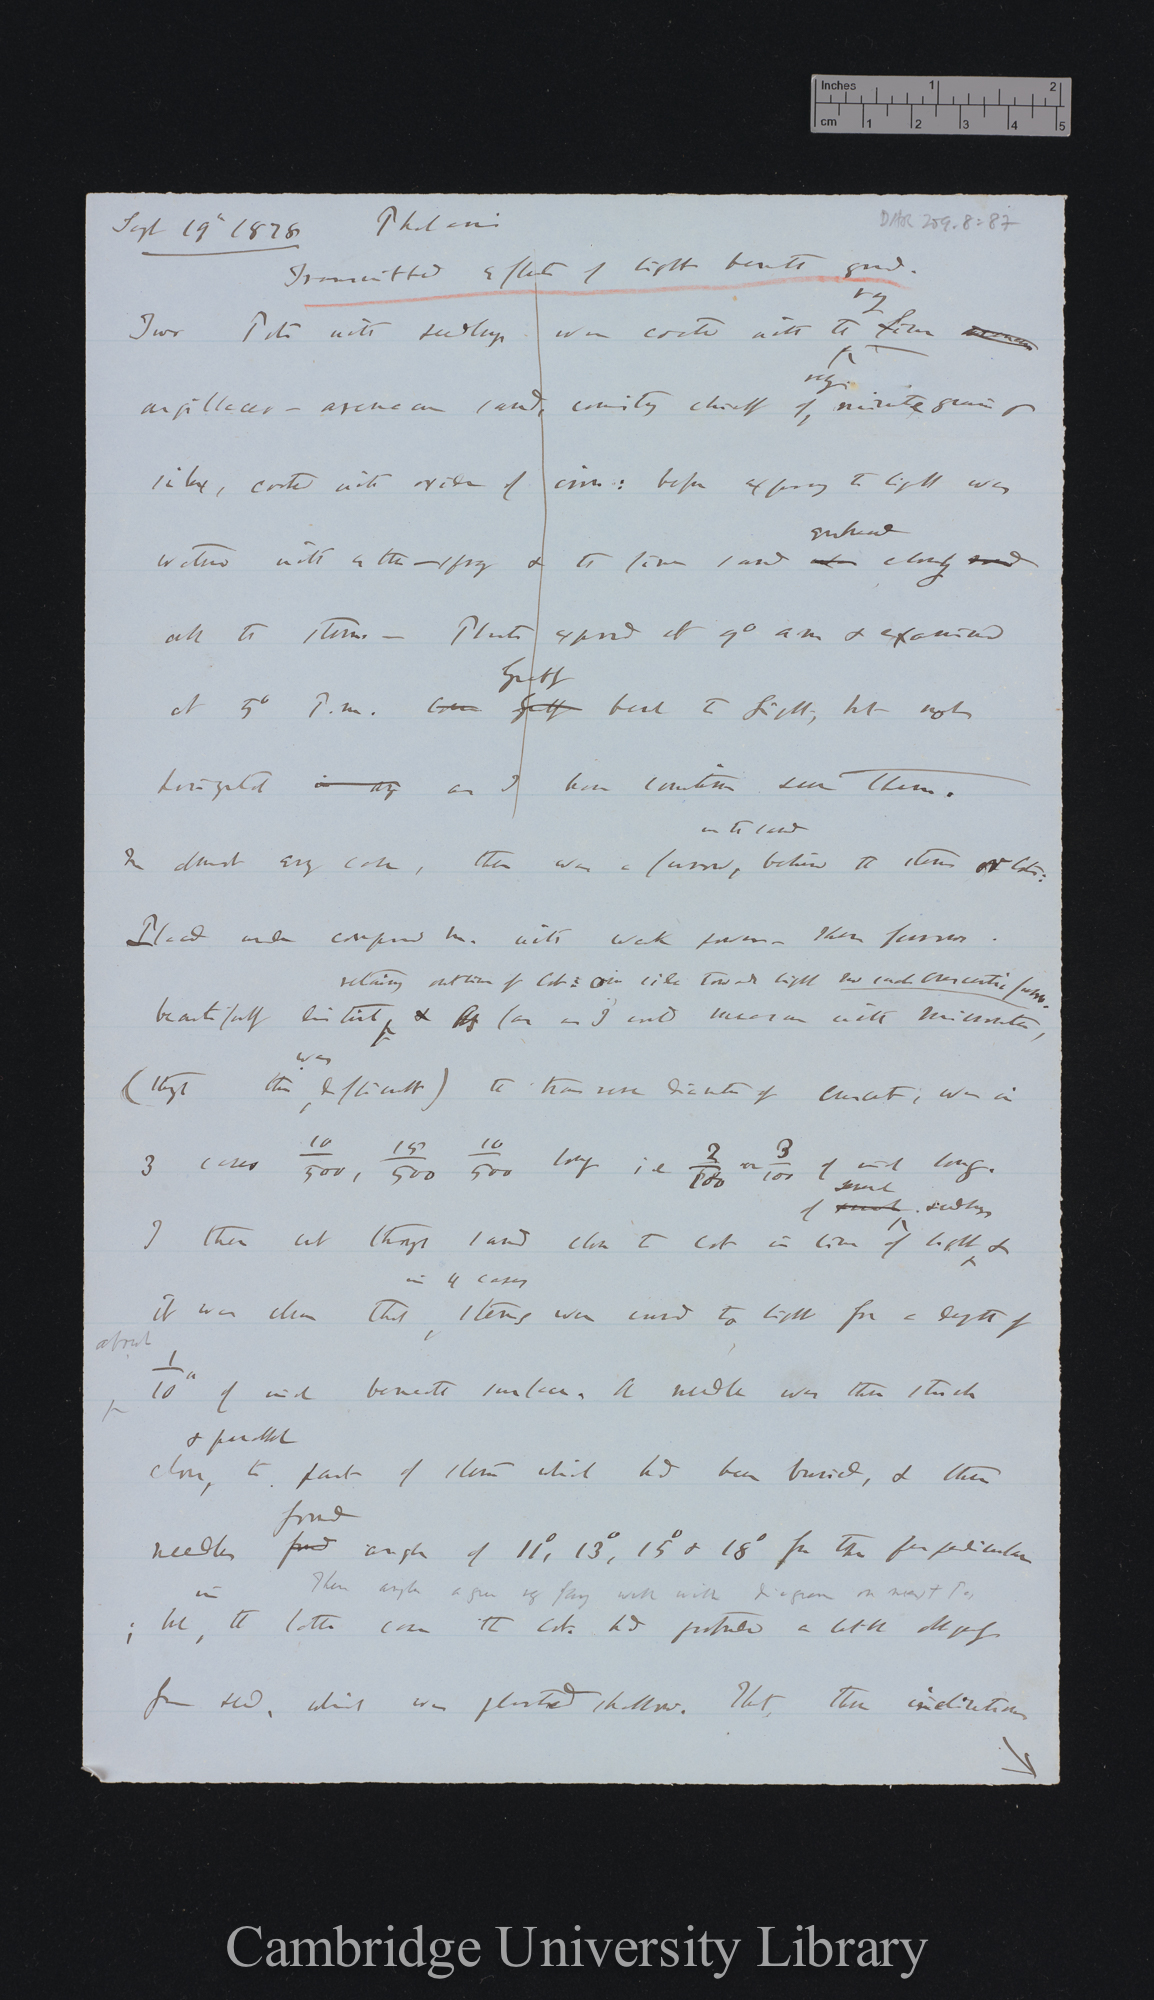 Inches 1 2
cm 1 2 3 4 5
Sept 19th 1878 Phalaris
DAR 209.8:87
Transmitted effects of light beneath ground.
very
Two Pots with seedlings were coated with the fine
very
argillaceo-arenacean sand, consisting chiefly of, minute grains of
silex, coated with oxide of iron: before exposing to light was
surrounded
watered with & the fine sand closely
all the stems — Plants exposed at 9° a.m & examined
greatly
at 5° P.m. bent to light, but not
horizontal as I have sometimes seen them.
in the sand
In almost every case, there was a furrow, behind the stems or Cots:
I placed under compound m. with weak power these furrows
retaining outline of Cot: on side towards light
beautifully distinct & as far as I could measure with micrometer,
was
(though this, difficult) the transverse diameter of crescent, was in
3 cases 10/500, 15/500 10/500 long i.e 2/100 or 3/100 of inch long.
of several seedlings
I then cut through sand close to Cot in line of light &
in 4 cases
it was clear that, stems were curved to light for a depth of
about
1/10th of inch beneath surface. A needle was then stuck
& parallel
close, to part of stem which had been buried, & these
found
needles angles of 11°, 13°, 15° & 18° from the perpendicular
in These angles agree very fairly well with diagram on next Page
; but, the latter case the Cot: had protruded a little obliquely
from seed, which was planted shallow. That, these inclinations
Cambridge University Library